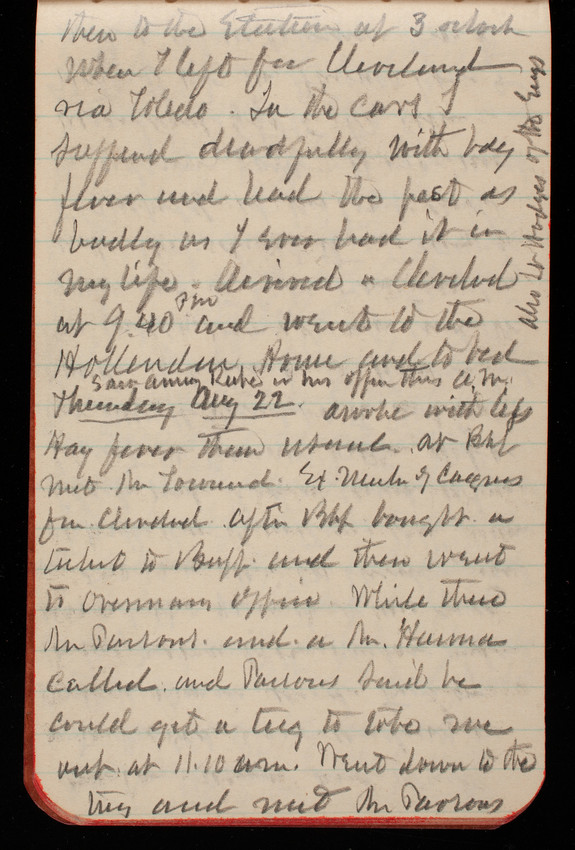 then to the Station at 3 oclock
when I left for Cleveland
via Toledo. In the cars I
suffered dreadfully with hay
fever and had the past as
badly as I ever had it in
my life. Arrived a Cleveland
at 9.40 pm and went to the
Hollenden House and to bed
Saw in his office this a.m.
Thursday Aug 22. awoke with less
Hay fever than usual. at Bkf
met Mr Townsend. Ex Memb of Congress
from Cleveland. after Bkf bought a
ticket to Buff. and then went
to office. While there
Mr Parsons. and a Mr. Hanna
called. and Parsons said he
could get a tug to take me
out at 11.10 a.m. Went down to the
tug and met Mr Parsons
also Lt Hodges of the Engs